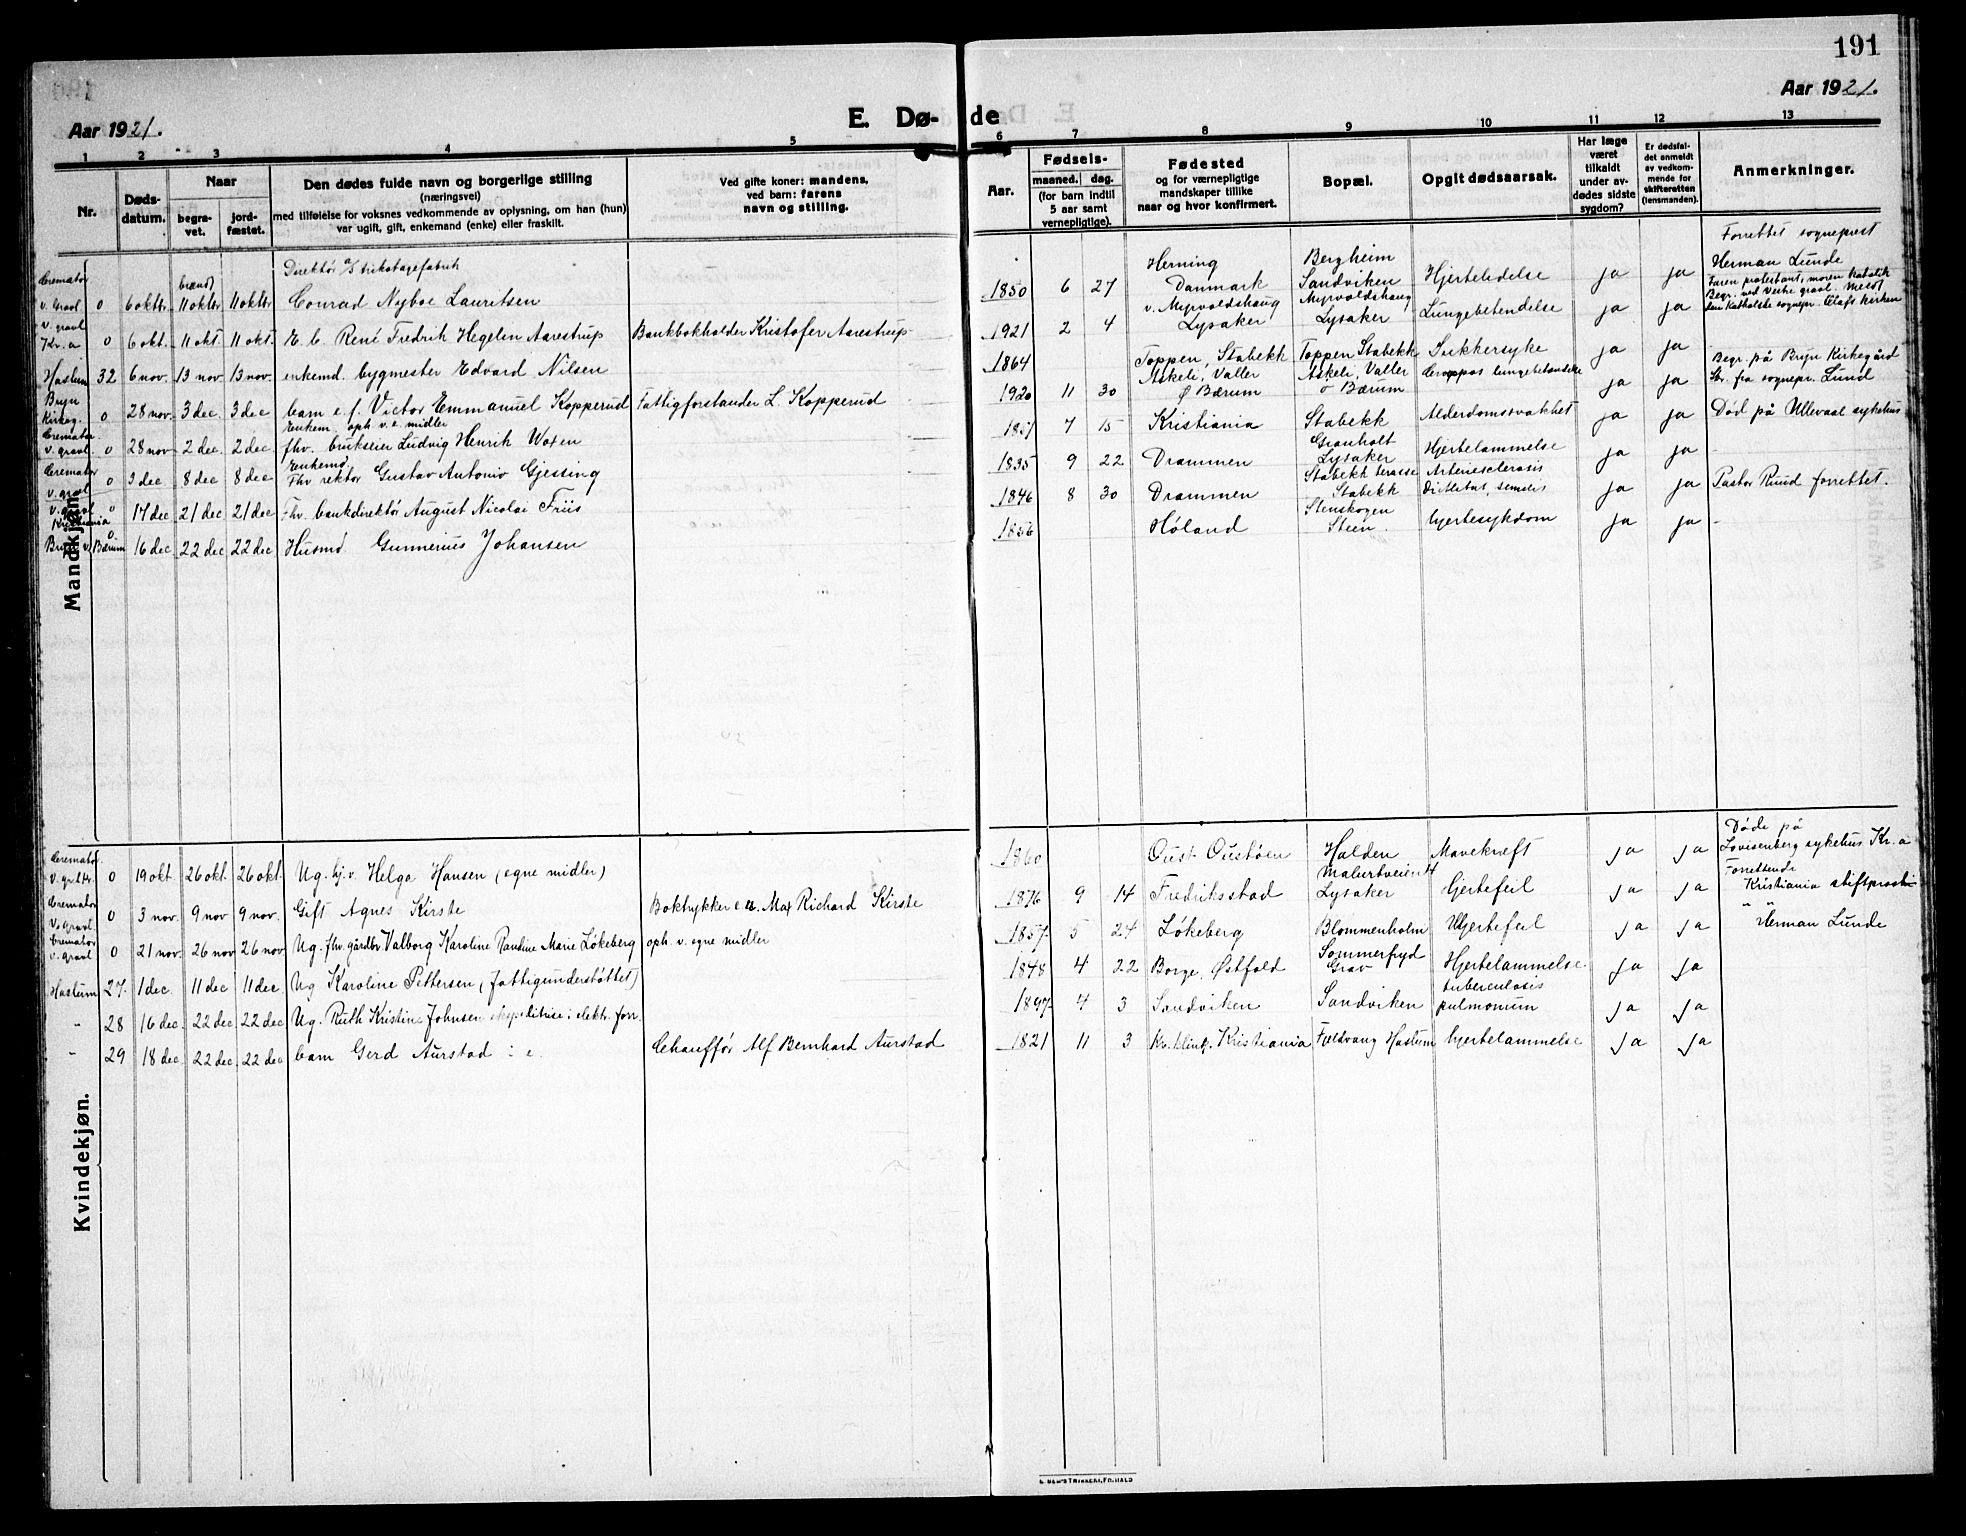 191
Aar 1921.
Aar 1921.
E. Dø-
de
1 2 3 4 5 6 7 8 9 10 11 12 13
Nr.
Døds-
datum.
Naar
begra-
vet.
jord-
fæstet.
Den dødes fulde navn og borgerlige stilling
(næringsvei)
med tilføielse for voksnes vedkommende av oplysning, om han (hun)
var ugift, gift, enkemand (enke) eller fraskilt.
Ved gifte koner: mandens,
ved barn: farens
navn og stilling.
Aar.
Fødsels-
maaned. dag.
(for barn indtil
5 aar samt
vernepligtige).
Fødested
og for værnepligtige
mandskaper tillike
naar og hvor konfirmert.
Bopæl.
Opgit dødsaarsak.
Har læge
været
tilkaldt
under av-
dødes sidste
sygdom?
Er dødsfal-
det anmeldt
av vedkom-
mende for
skifteretten
(lensmanden).
Anmerkninger.
Mandkjøn.
Cremator
v. Gravl 0 6 oktr. brændt 11 oktr 11 oktr Direktør a/s trikotagefabrik
Conrad Nyboe Lauritsen
1850 6 27 Herning Danmark Bergheim Sandviken Hjertelidelse ja ja Forrettet sogneprest
Herman Lunde
v. gravl
Kr.a 0 6 okt. 11 okt 11 okt. E. b. René Fredrik Hegelin Aarestrup Bankbokholder Kristofer Aarestrup
1921 2 4 v. Myrvoldshaug Lysaker Myrvoldshaug Lysaker Lungebetendelse ja ja Faren protestant, moren katolik
Begr. ved Vestre gravl. Meldt
den Katholske sognepr. Olafs kirken
Haslum 32 6 nov. 13 nov 13 nov. enkemd. bygmester Edvard Nilsen
1864 Toppen, Stabekk Toppen Stabekk Sukkersyke ja ja
Bryn
Kirkeg. 0 28 nov. 3 dec. 3 dec barn e. f. Victor Emmanuel Kopperud Fattigforstander L. Kopperud
1920 11 30 Askeli, Valler Ø Bærum Askeli, Valler Ø Bærum lungebetændelse ja ja Begr. på Bryn Kirkegård
fra sognepr. Lund
Cremator.
v. gravl. 0 28 nov 2 dec. 2 dec. Enkem. oph. v. e. midler
fhv. brukseier Ludvig Henrik
7 15 Kristiania Stabekk Alderdomssvakhet ja ja Død på Ullevaal sykehus
Cremator
v. gravl 0 3 dec 8 dec 8 dec Enkemd.
Fhv rektor Gustav Antonio Gjessing
1835 9 22 Drammen Granholt Lysaker Hjertelammelse ja ja
v. gravl
Kristiania 0 17 dec 21 dec 21 dec Fhv. bankdirektør August Nicolai Friis
1846 8 30 Drammen Stabekk terasse Stabekk Arteriesclerosis ja ja Pastor Ruud forrettet.
Bryn v. Bærum 0 16 dec. 22 dec. 22 dec Husmd Gunnerius Johansen
1856 Høland Stenskogen Steen. hjertesykdom ja ja
Kvindekjøn.
Cremator.
0 19 okt. 26 okt. 26 okt. Ug. hj. v. Helga Hansen (egne midler)
1860 Oust Oustøen Halden Mavekræft ja ja Døde på
Lovisenberg sykehus Kr. a
Cremator
v. gravl. 0 3 nov. 9 nov. 9 nov. Gift Agnes Kirste Boktrykker Max Richard Kirste
1876 9 14 Fredriksstad Malurtveien 14 Lysaker hjertefeil ja ja Forrettende
Kristiania stiftprost
Cremator
v. gravl 0 21 nov. 26 nov 26 nov Ug. fhv. gårdbr Valborg Karoline Pauline Marie Løkeberg oph. v. egne midler
1857 5 24 Løkeberg Blommenholm Hjertefeil ja ja " " Herman Lunde
Haslum 27. 1 dec. 11 dec 11 dec Ug Karoline Pettersen (fattigunderstøttet)
1848 4 22 Borge, Østfold Sommerfryd Grav Hjertelammelse ja ja
" 28 16 dec. 22 dec. 22 dec Ug. Ruth Kristine Johnsen ekspeditrise i elektr. forr.
1897 4 3 Sandviken Sandviken tuberculosis pulmonum ja ja
" 29 18 dec. 22 dec. 22 dec barn Gerd Aurstad i e. Chauffør Alf Bernhard Aurstad
1821 11 3 Kv. klinik. Kristiania Fjeldvang Haslum hjertelammelse ja ja